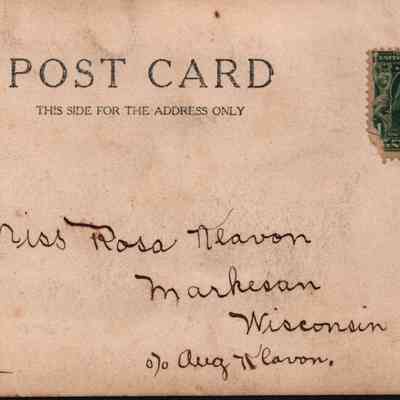 POST CARD
THIS SIDE FOR THE ADDRESS ONLY
Miss Rosa Klavon
Markesan
Wisconsin
c/o Aug Klavon.